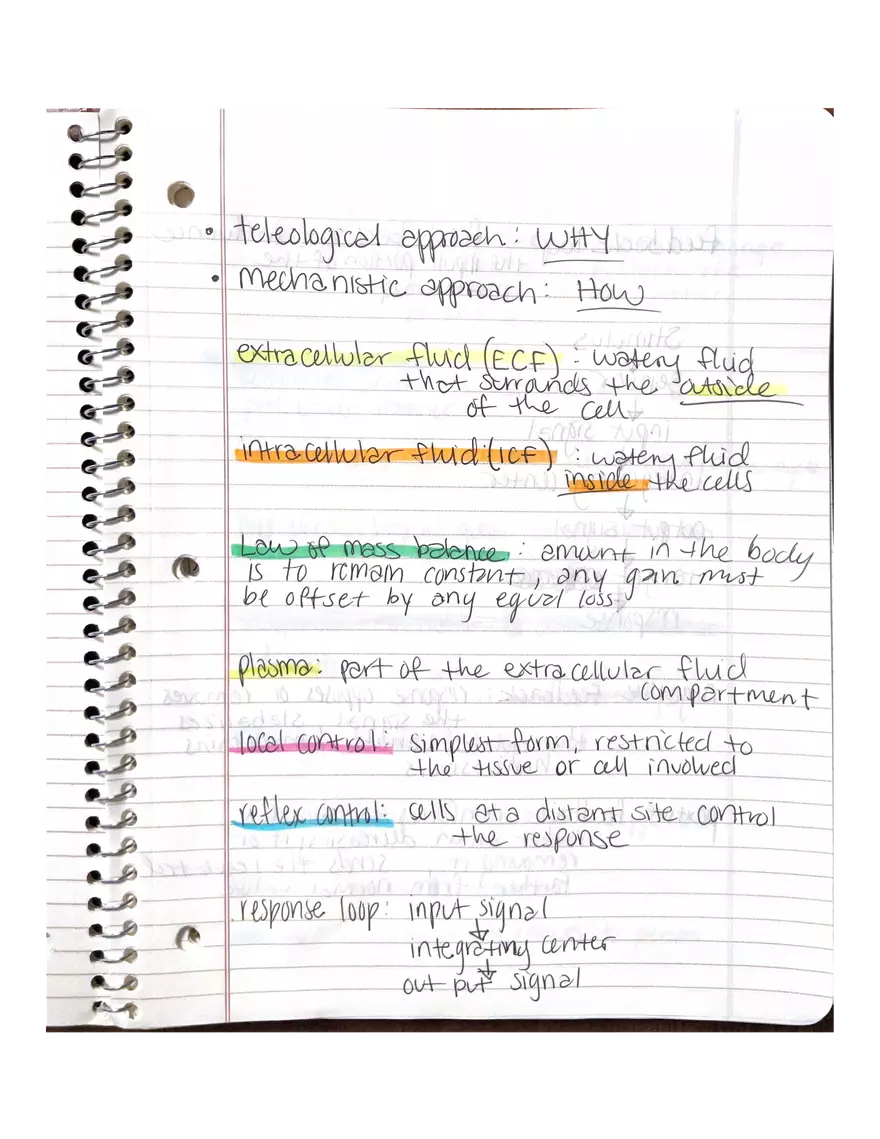 • teleological approach: WHY
• mechanistic approach: HOW
extracellular fluid (ECF): watery fluid
that surrounds the outside
of the cell
intracellular fluid: (ICF) : watery fluid
inside the cells
Law of mass balance: amount in the body
is to remain constant, any gain must
be offset by any equal loss
plasma: part of the extracellular fluid
compartment
local control: simplest form, restricted to
the tissue or cell involved
reflex control: cells at a distant site control
the response
response loop: input signal
↓
integrating center
↓
out put signal